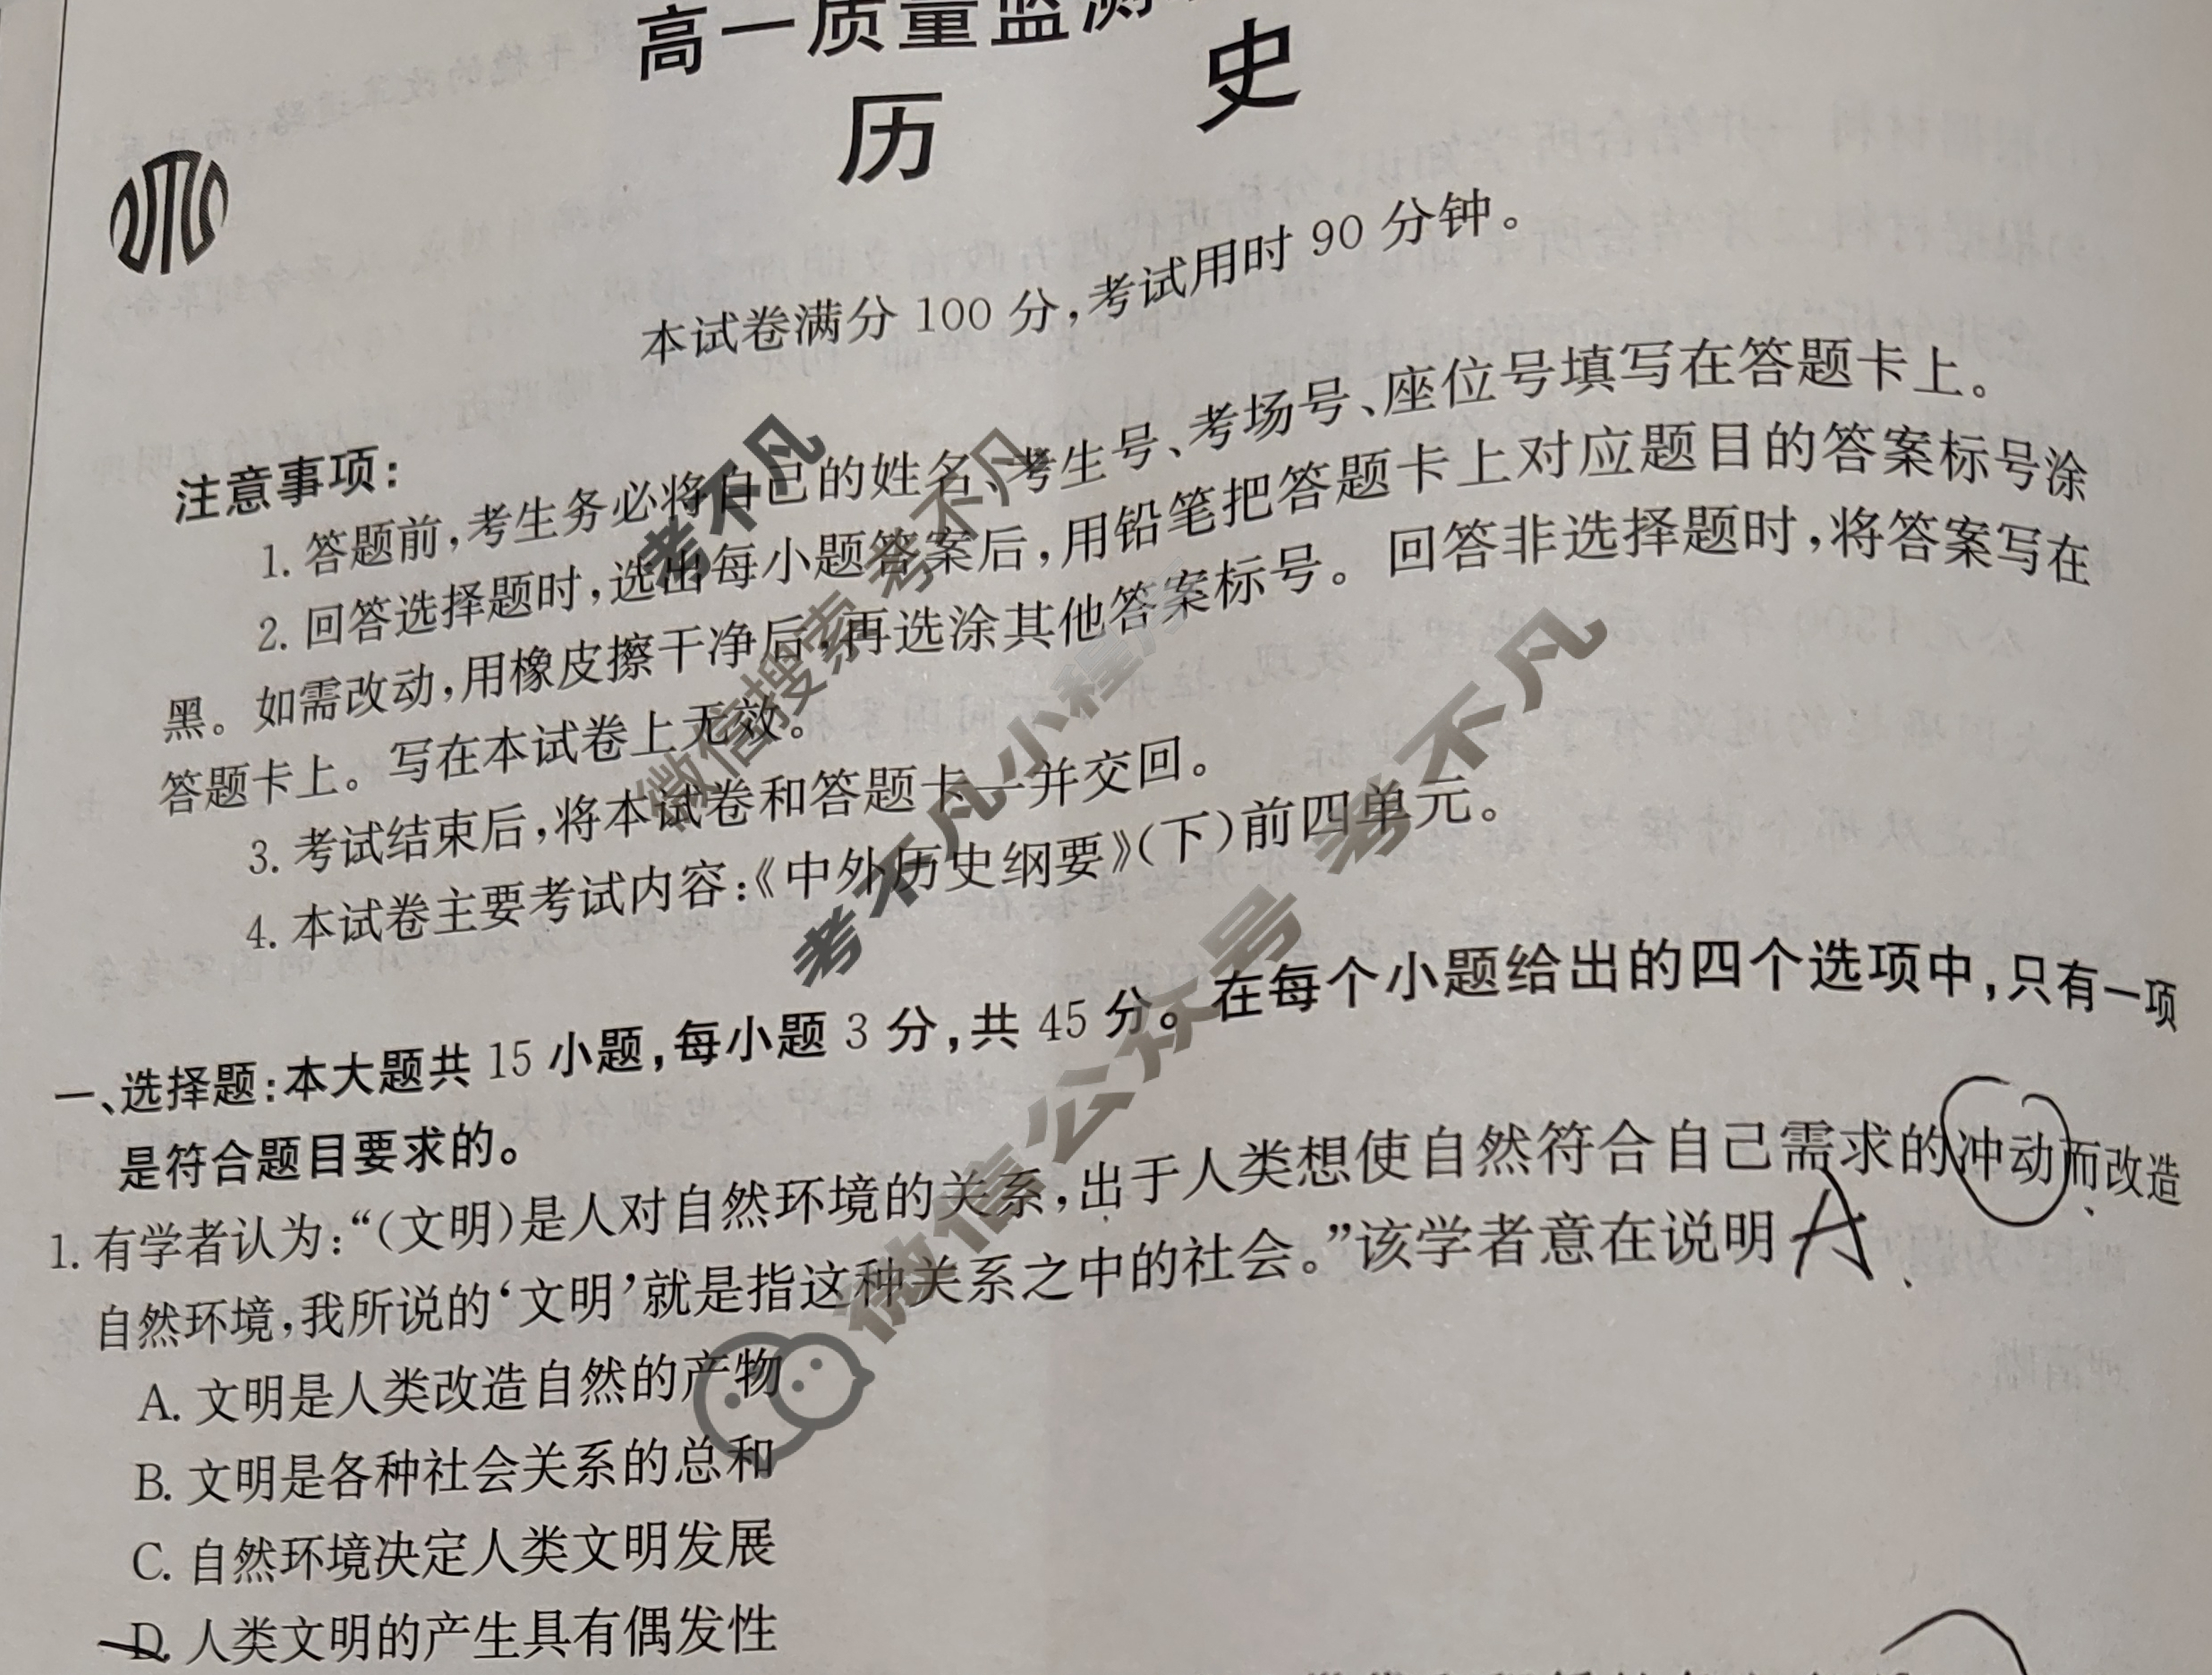 高一质量监测
历 史
本试卷满分 100 分,考试用时 90 分钟。
注意事项:
1. 答题前,考生务必将自己的姓名、考生号、考场号、座位号填写在答题卡上。
2. 回答选择题时,选出每小题答案后,用铅笔把答题卡上对应题目的答案标号涂
黑。如需改动,用橡皮擦干净后,再选涂其他答案标号。回答非选择题时,将答案写在
答题卡上。写在本试卷上无效。
3. 考试结束后,将本试卷和答题卡一并交回。
4. 本试卷主要考试内容:《中外历史纲要》(下)前四单元。
一、选择题:本大题共 15 小题,每小题 3 分,共 45 分。在每个小题给出的四个选项中,只有一项
是符合题目要求的。
1. 有学者认为:“(文明)是人对自然环境的关系,出于人类想使自然符合自己需求的冲动而改造
自然环境,我所说的‘文明’就是指这种关系之中的社会。”该学者意在说明 A
A. 文明是人类改造自然的产物
B. 文明是各种社会关系的总和
C. 自然环境决定人类文明发展
D. 人类文明的产生具有偶发性
考不凡
微信搜索 考不凡
考不凡小程序
微信公众号 考不凡